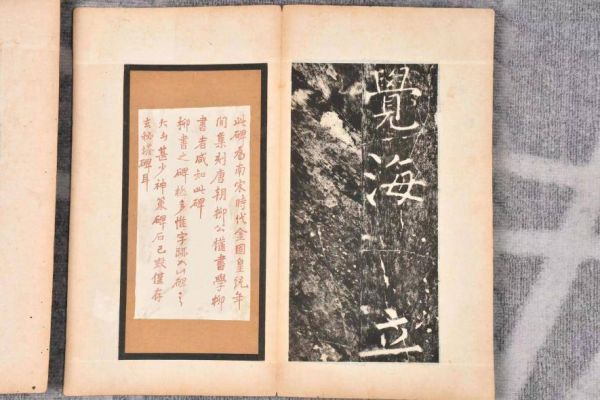 覺海立
此碑為南宋時代金國皇統年
間集刻唐朝柳公權書學柳
書者咸知此碑
柳書之碑極多惟字跡如此碑之
大者甚少神策碑石已毀僅存
玄秘塔碑耳